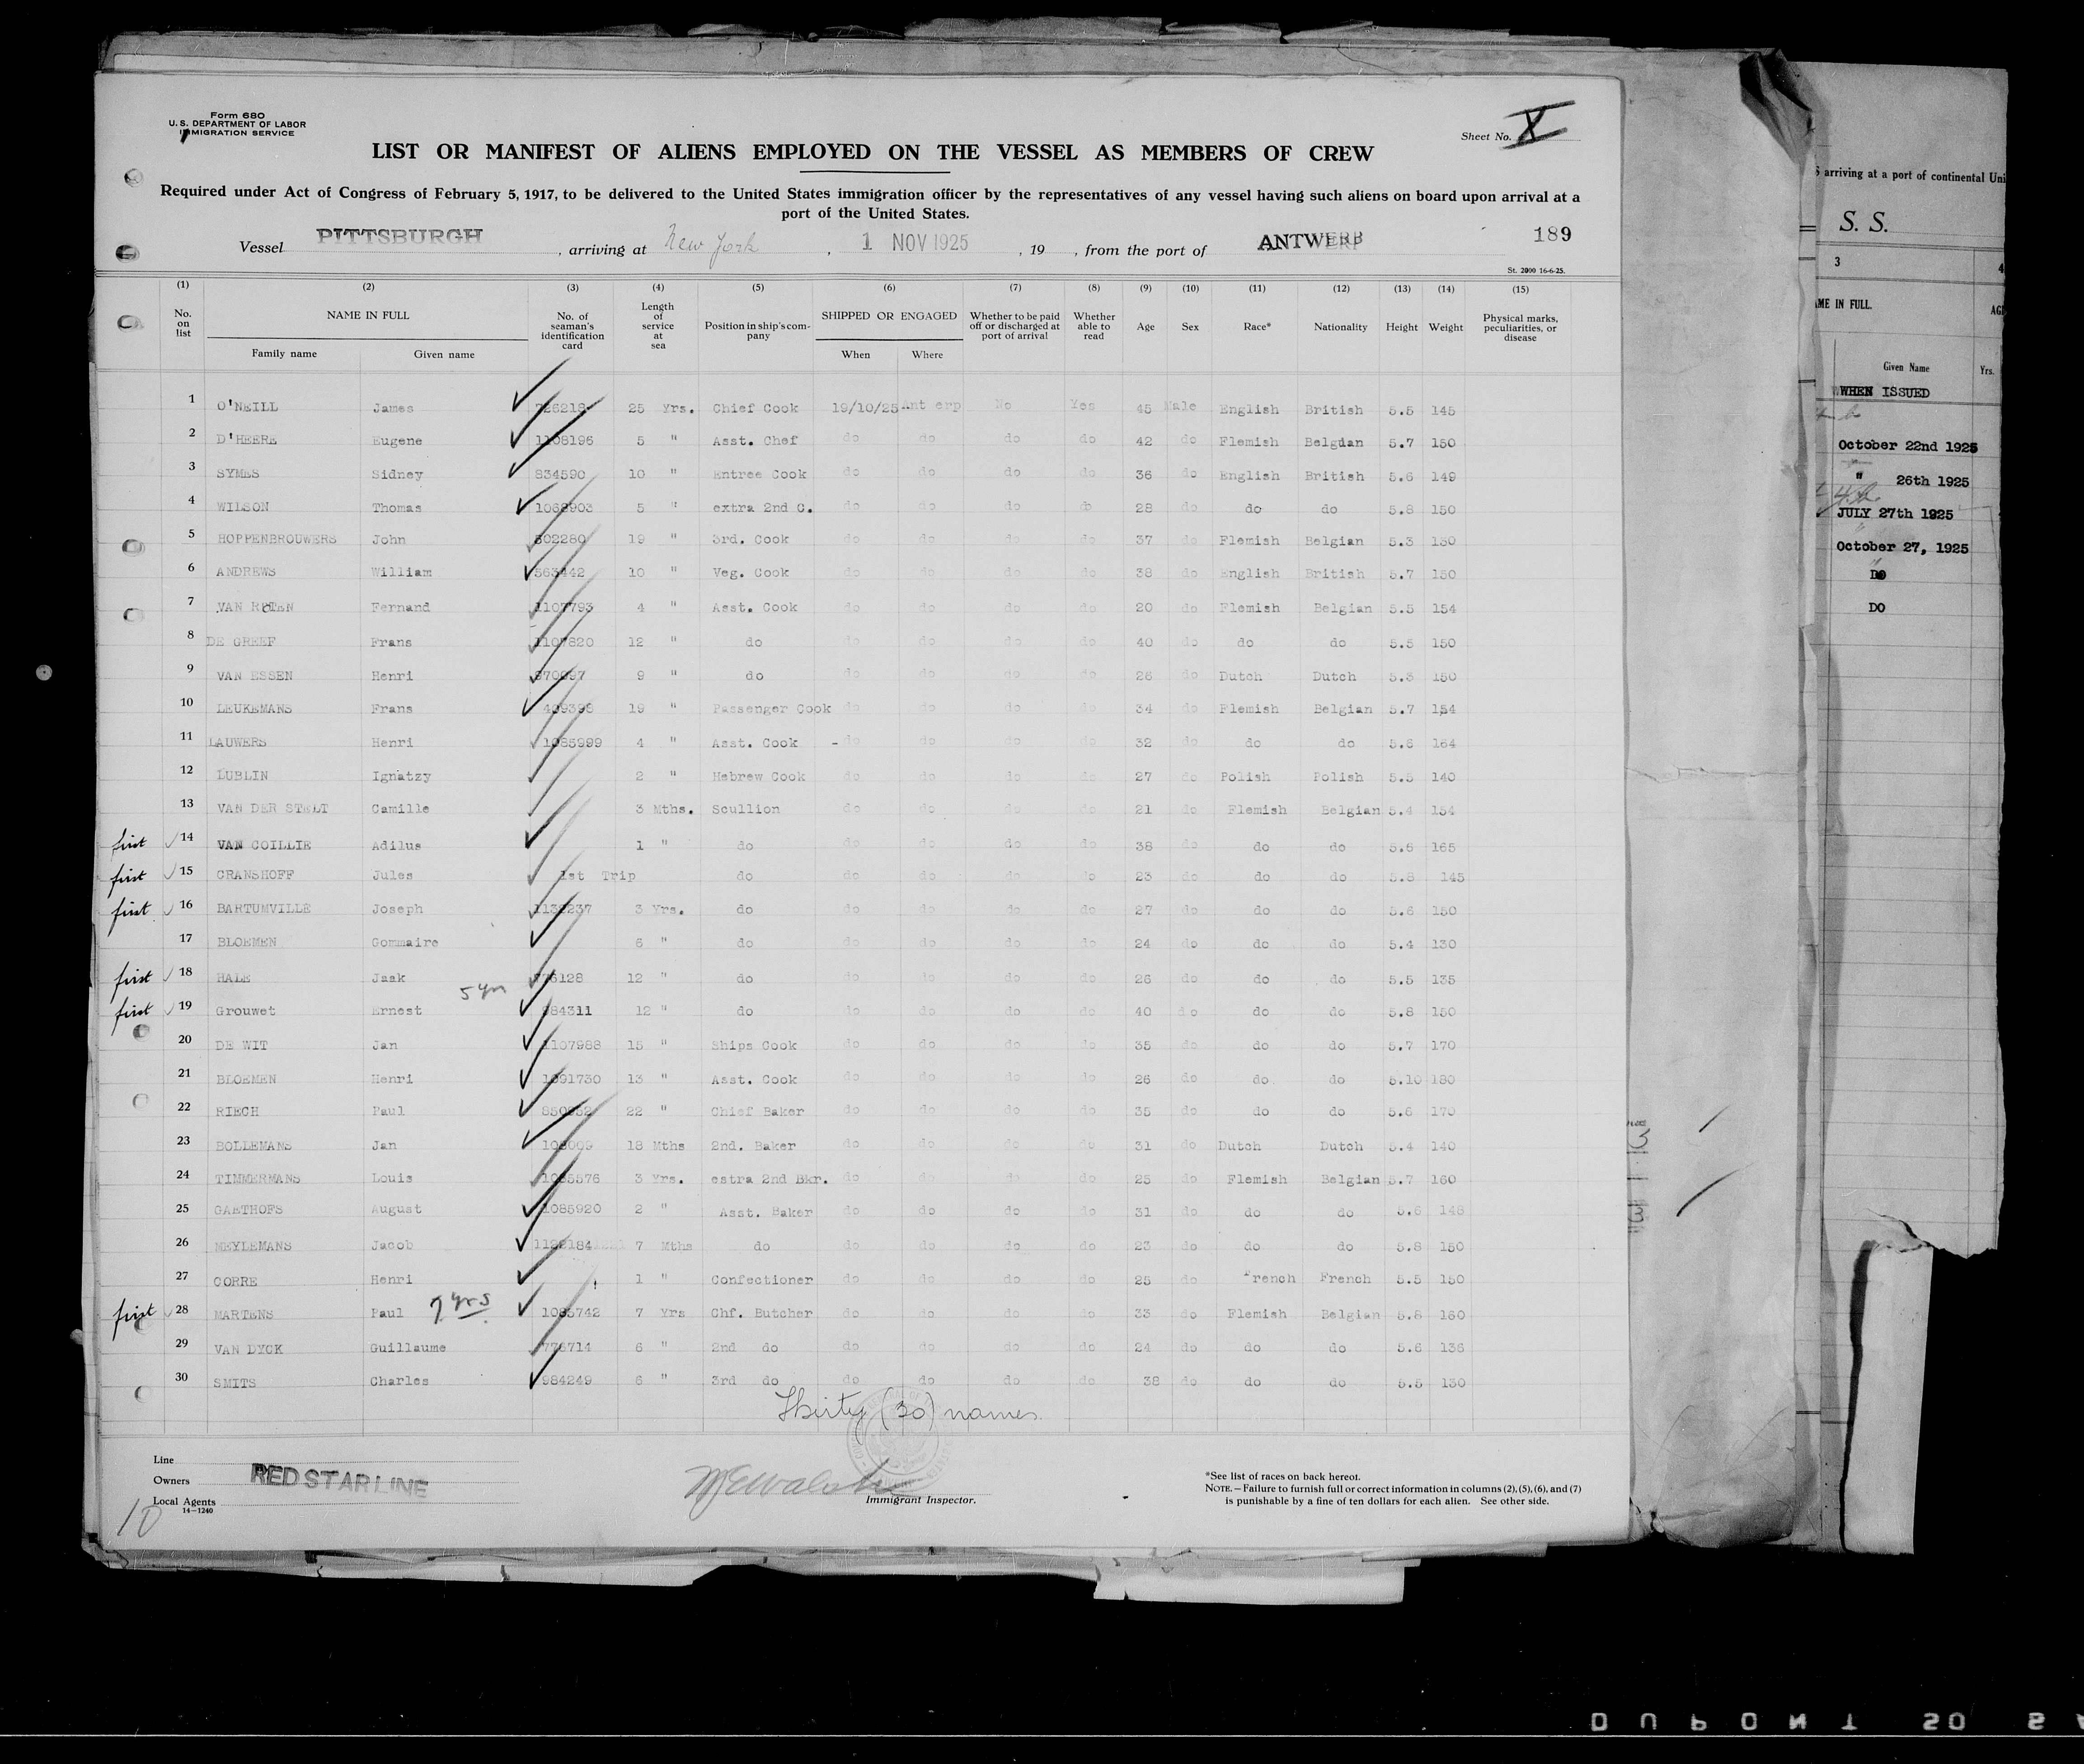 Form 680
U. S. DEPARTMENT OF LABOR
IMMIGRATION SERVICE
Sheet No. X
LIST OR MANIFEST OF ALIENS EMPLOYED ON THE VESSEL AS MEMBERS OF CREW
Required under Act of Congress of February 5, 1917, to be delivered to the United States immigration officer by the representatives of any vessel having such aliens on board upon arrival at a
port of the United States.
Vessel PITTSBURGH , arriving at New York , 1 NOV 1925 , 19 , from the port of ANTWERP 189
St. 2000 16-6-25.
(1) (2) (3) (4) (5) (6) (7) (8) (9) (10) (11) (12) (13) (14) (15)
No. on list NAME IN FULL Family name Given name No. of seaman's identification card Length of service at sea Position in ship's company SHIPPED OR ENGAGED When Where Whether to be paid off or discharged at port of arrival Whether able to read Age Sex Race* Nationality Height Weight Physical marks, peculiarities, or disease
1 O'NEILL James 25 Yrs. Chief Cook 19/10/25 Ant erp No Yes 45 Male English British 5.5 145
2 D'HEERE Eugene 1108196 5 " Asst. Chef do do do do 42 do Flemish Belgian 5.7 150
3 SYMES Sidney 834590 10 " Entree Cook do do do do 36 do English British 5.6 149
4 WILSON Thomas 1062903 5 " extra 2nd C. do do do do 28 do do do 5.8 150
5 HOPPENBROUWERS John 502280 19 " 3rd. Cook do do do do 37 do Flemish Belgian 5.3 130
6 ANDREWS William 563442 10 " Veg. Cook do do do do 38 do English British 5.7 150
7 VAN RETEN Fernand 1107793 4 " Asst. Cook do do do do 20 do Flemish Belgian 5.5 154
8 DE GREEF Frans 1107820 12 " do do do do do 40 do do do 5.5 150
9 VAN ESSEN Henri 9 " do do do do do 26 do Dutch Dutch 5.3 150
10 LEUKEMANS Frans 19 " Passenger Cook do do do do 34 do Flemish Belgian 5.7 154
11 LAUWERS Henri 1085999 4 " Asst. Cook - do do do do 32 do do do 5.6 164
12 LUBLIN Ignatzy 2 " Hebrew Cook do do do do 27 do Polish Polish 5.5 140
13 VAN DER STELT Camille 3 Mths. Scullion do do do do 21 do Flemish Belgian 5.4 154
first 14 VAN COILLIE Adilus 1 " do do do do do 38 do do do 5.6 165
first 15 CRANSHOFF Jules 1st Trip do do do do do 23 do do do 5.8 145
first 16 BARTUMVILLE Joseph 3 Yrs. do do do do do 27 do do do 5.6 150
17 BLOEMEN Gommaire 6 " do do do do do 24 do do do 5.4 130
first 18 HALE Jaak 12 " do do do do do 26 do do do 5.5 135
5 yrs
first 19 Grouwet Ernest 984311 12 " do do do do do 40 do do do 5.8 150
20 DE WIT Jan 1107988 15 " Ships Cook do do do do 35 do do do 5.7 170
21 BLOEMEN Henri 1091730 13 " Asst. Cook do do do do 26 do do do 5.10 180
22 RIECH Paul 22 " Chief Baker do do do do 35 do do do 5.6 170
23 BOLLEMANS Jan 18 Mths 2nd. Baker do do do do 31 do Dutch Dutch 5.4 140
24 TIMMERMANS Louis 1085576 3 Yrs. estra 2nd Bkr. do do do do 25 do Flemish Belgian 5.7 160
25 GAETHOFS August 1085920 2 " Asst. Baker do do do do 31 do do do 5.6 148
26 MEYLEMANS Jacob 7 Mths do do do do do 23 do do do 5.8 150
27 CORRE Henri 1 " Confectioner do do do do 25 do French French 5.5 150
first 28 MARTENS Paul 7 yrs 1085742 7 Yrs Chf. Butcher do do do do 33 do Flemish Belgian 5.8 160
29 VAN DYCK Guillaume 6 " 2nd do do do do do 24 do do do 5.6 136
30 SMITS Charles 984249 6 " 3rd do do do do do 38 do do do 5.5 130
Thirty (30) names
Line
Owners RED STAR LINE
Local Agents
14-1240
10
Immigrant Inspector.
*See list of races on back hereof.
NOTE.—Failure to furnish full or correct information in columns (2), (5), (6), and (7)
is punishable by a fine of ten dollars for each alien. See other side.
arriving at a port of continental Uni
S. S.
3 4
ME IN FULL. AG
Given Name Yrs.
WHEN ISSUED
October 22nd 1925
" 26th 1925
JULY 27th 1925
October 27, 1925
DO
DO
DUPONT